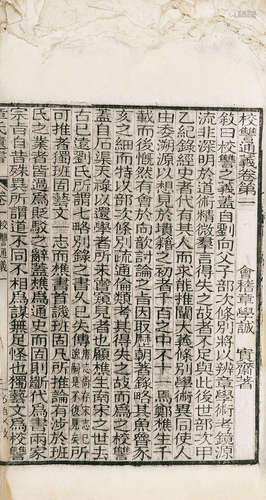 校讐通義卷第一
會稽章學誠 實齋著
敘曰校讐之義蓋自劉向父子部次條別將以辨章學術考鏡源
流非深明於道術精微羣言得失之故者不足與此後世部次甲
乙紀錄經史者代有其人而求能推闡大義條別學術異同使人
由委溯源以想見於墳籍之初者千百之中不十一焉鄭樵生千
載而後慨然有會於向歆討論之旨因取歷朝著錄略其魚魯豕
亥之細而特以部次條別疏通倫類考其得失之故而爲之校讐
蓋自石渠天祿以還學者所未嘗窺見者也顧樵生南宋之世去
古已遠劉氏所謂七略別錄之書久已失傳唐志尚存宋志已逸嗣是不復見矣所
可推者獨班固藝文一志而樵書首譏班固凡所推論有涉於班
氏之業者皆過爲貶駁之辭蓋樵爲通史而固則斷代爲書兩家
宗旨自昔殊異所謂道不同不相爲謀無足怪也獨藝文爲校
章氏遺書 卷一 校讐通義 一